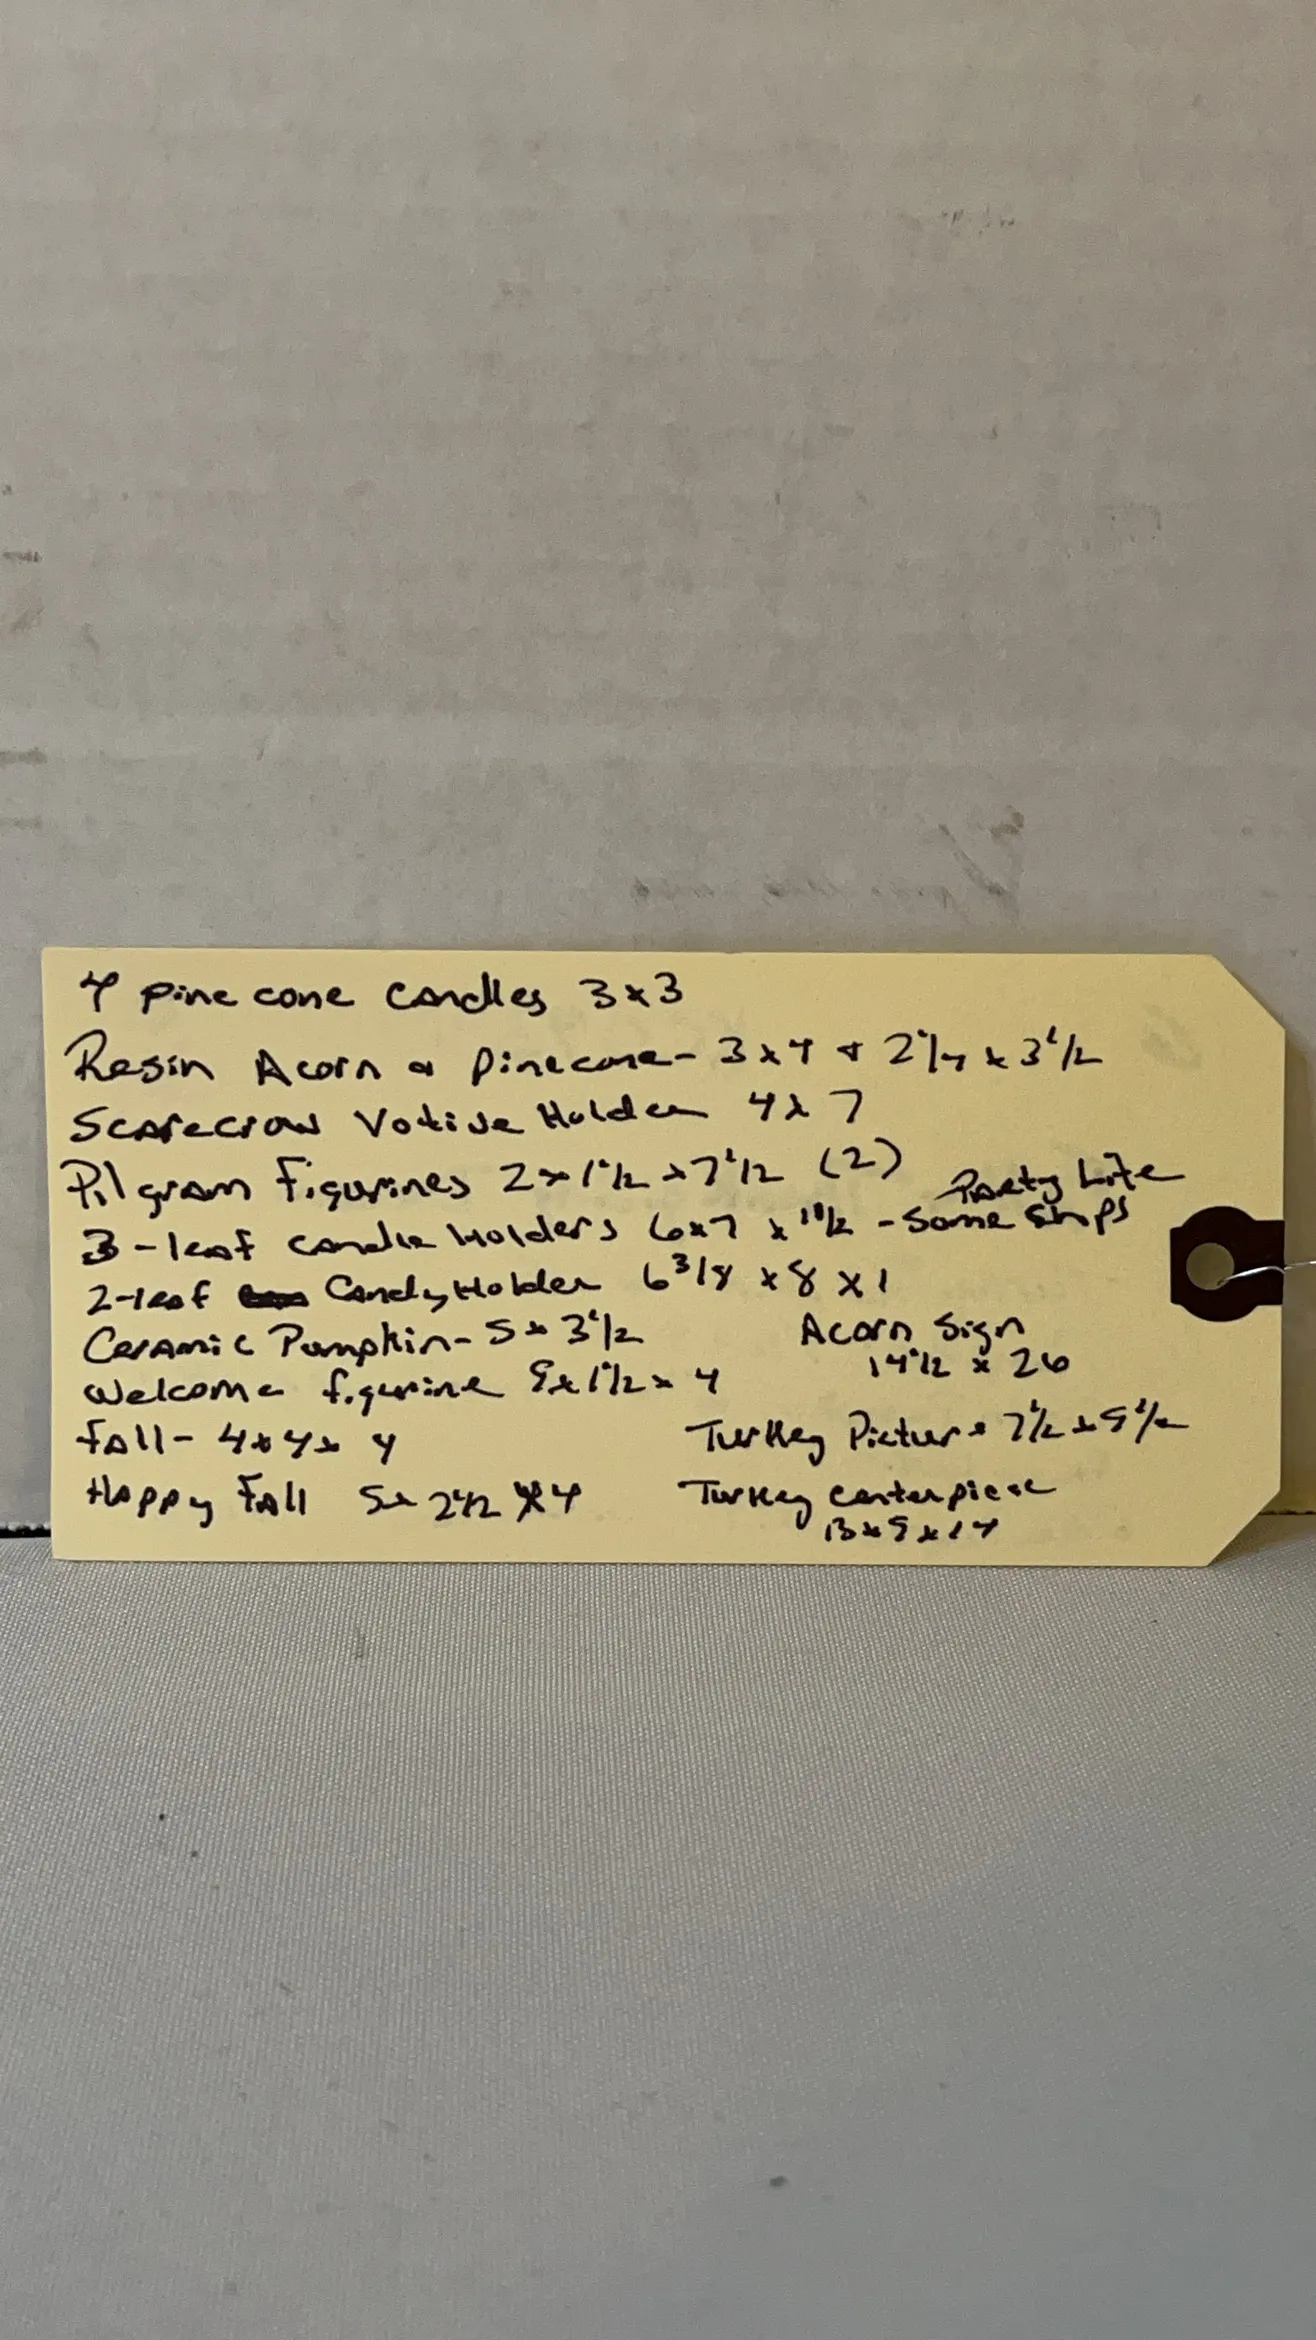 4 pine cone candles 3x3
Resin Acorn & Pinecone- 3x4 & 2 1/4 x 3 1/2
Scarecrow Votive Holder 4x7
Pilgram Figurines 2x1 1/2 x7 1/2 (2)
Party Lite
3-leaf candle Holders 6x7 x 1 1/2 - Some Chips
2-leaf Candy Holder 6 3/8 x 8 x 1
Ceramic Pumpkin- 5x 3 1/2
Acorn Sign
14 1/2 x 26
Welcome figurine x 1 1/2 x 4
Fall- 4x4x 4
Turkey Picture 7 1/2 x 5 1/2
Happy Fall 5x 2 1/2 x 4
Turkey Centerpiece
13x x 14